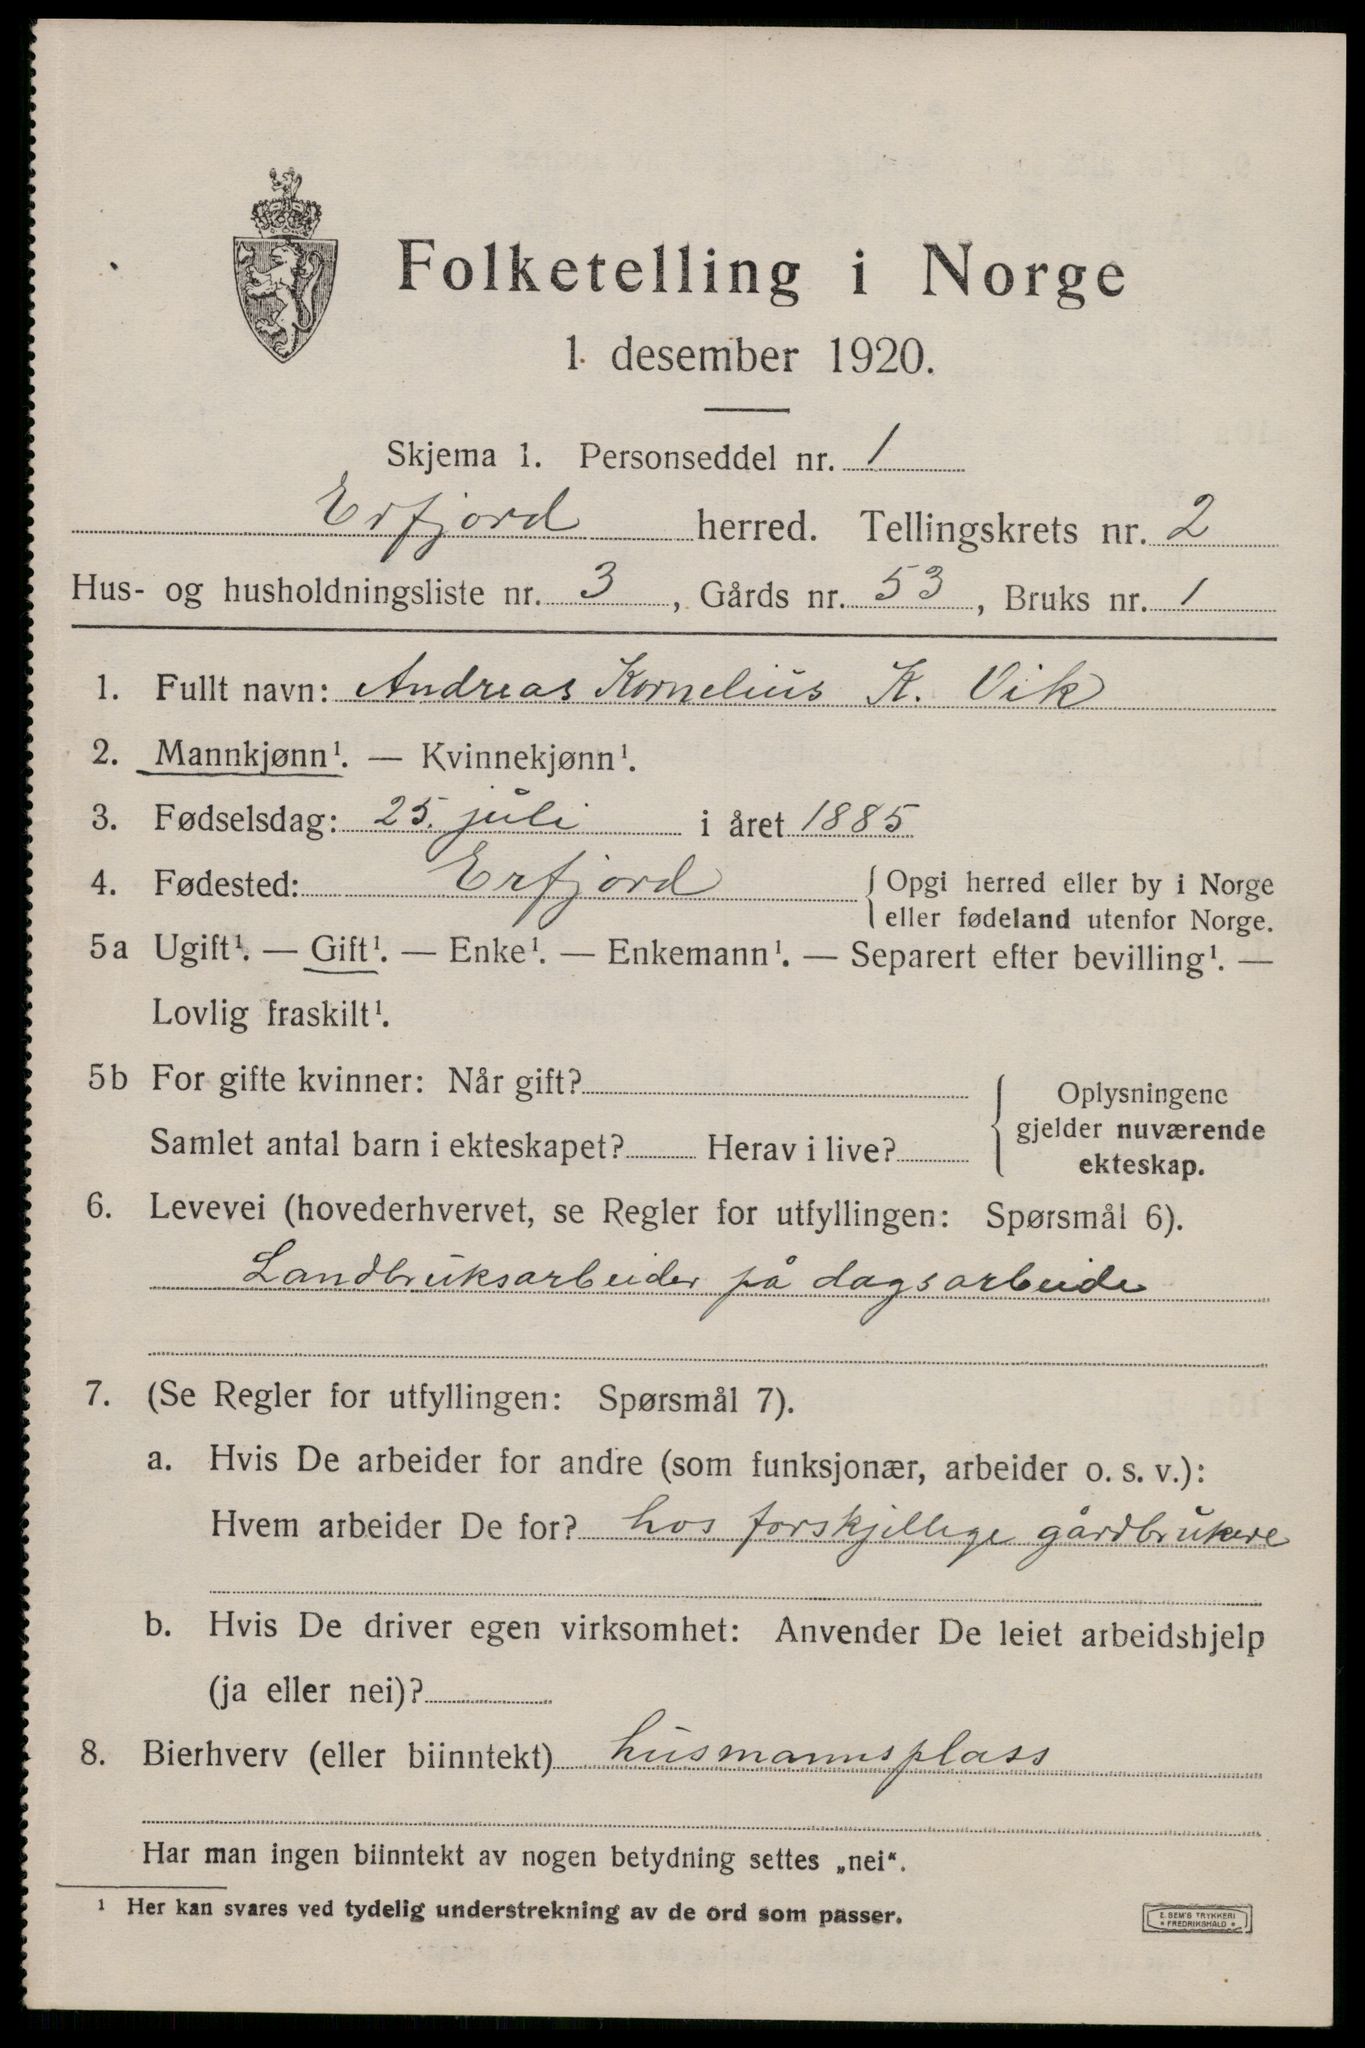 Folketelling i Norge
1. desember 1920.
Skjema 1. Personseddel nr. 1
Erfjord herred. Tellingskrets nr. 2
Hus- og husholdningsliste nr. 3, Gårds nr. 53, Bruks nr. 1
1. Fullt navn: Andreas Kornelius K. Vik
2. Mannkjønn¹. — Kvinnekjønn¹.
3. Fødselsdag: 25. juli i året 1885
4. Fødested: Erfjord { Opgi herred eller by i Norge
eller fødeland utenfor Norge.
5a Ugift¹. — Gift¹. — Enke¹. — Enkemann¹. — Separert efter bevilling¹. —
Lovlig fraskilt¹.
5b For gifte kvinner: Når gift? { Oplysningene
gjelder nuværende
Samlet antal barn i ekteskapet? Herav i live?
ekteskap.
6. Levevei (hovederhvervet, se Regler for utfyllingen: Spørsmål 6).
Landbruksarbeider på dagsarbeide
7. (Se Regler for utfyllingen: Spørsmål 7).
a. Hvis De arbeider for andre (som funksjonær, arbeider o. s. v.):
Hvem arbeider De for? hos forskjellige gårdbrukere
b. Hvis De driver egen virksomhet: Anvender De leiet arbeidshjelp
(ja eller nei)?
8. Bierhverv (eller biinntekt) husmannsplass
Har man ingen biinntekt av nogen betydning settes „nei“.
¹ Her kan svares ved tydelig understrekning av de ord som passer.
E. SEM'S TRYKKERI
* FREDRIKSHALD *